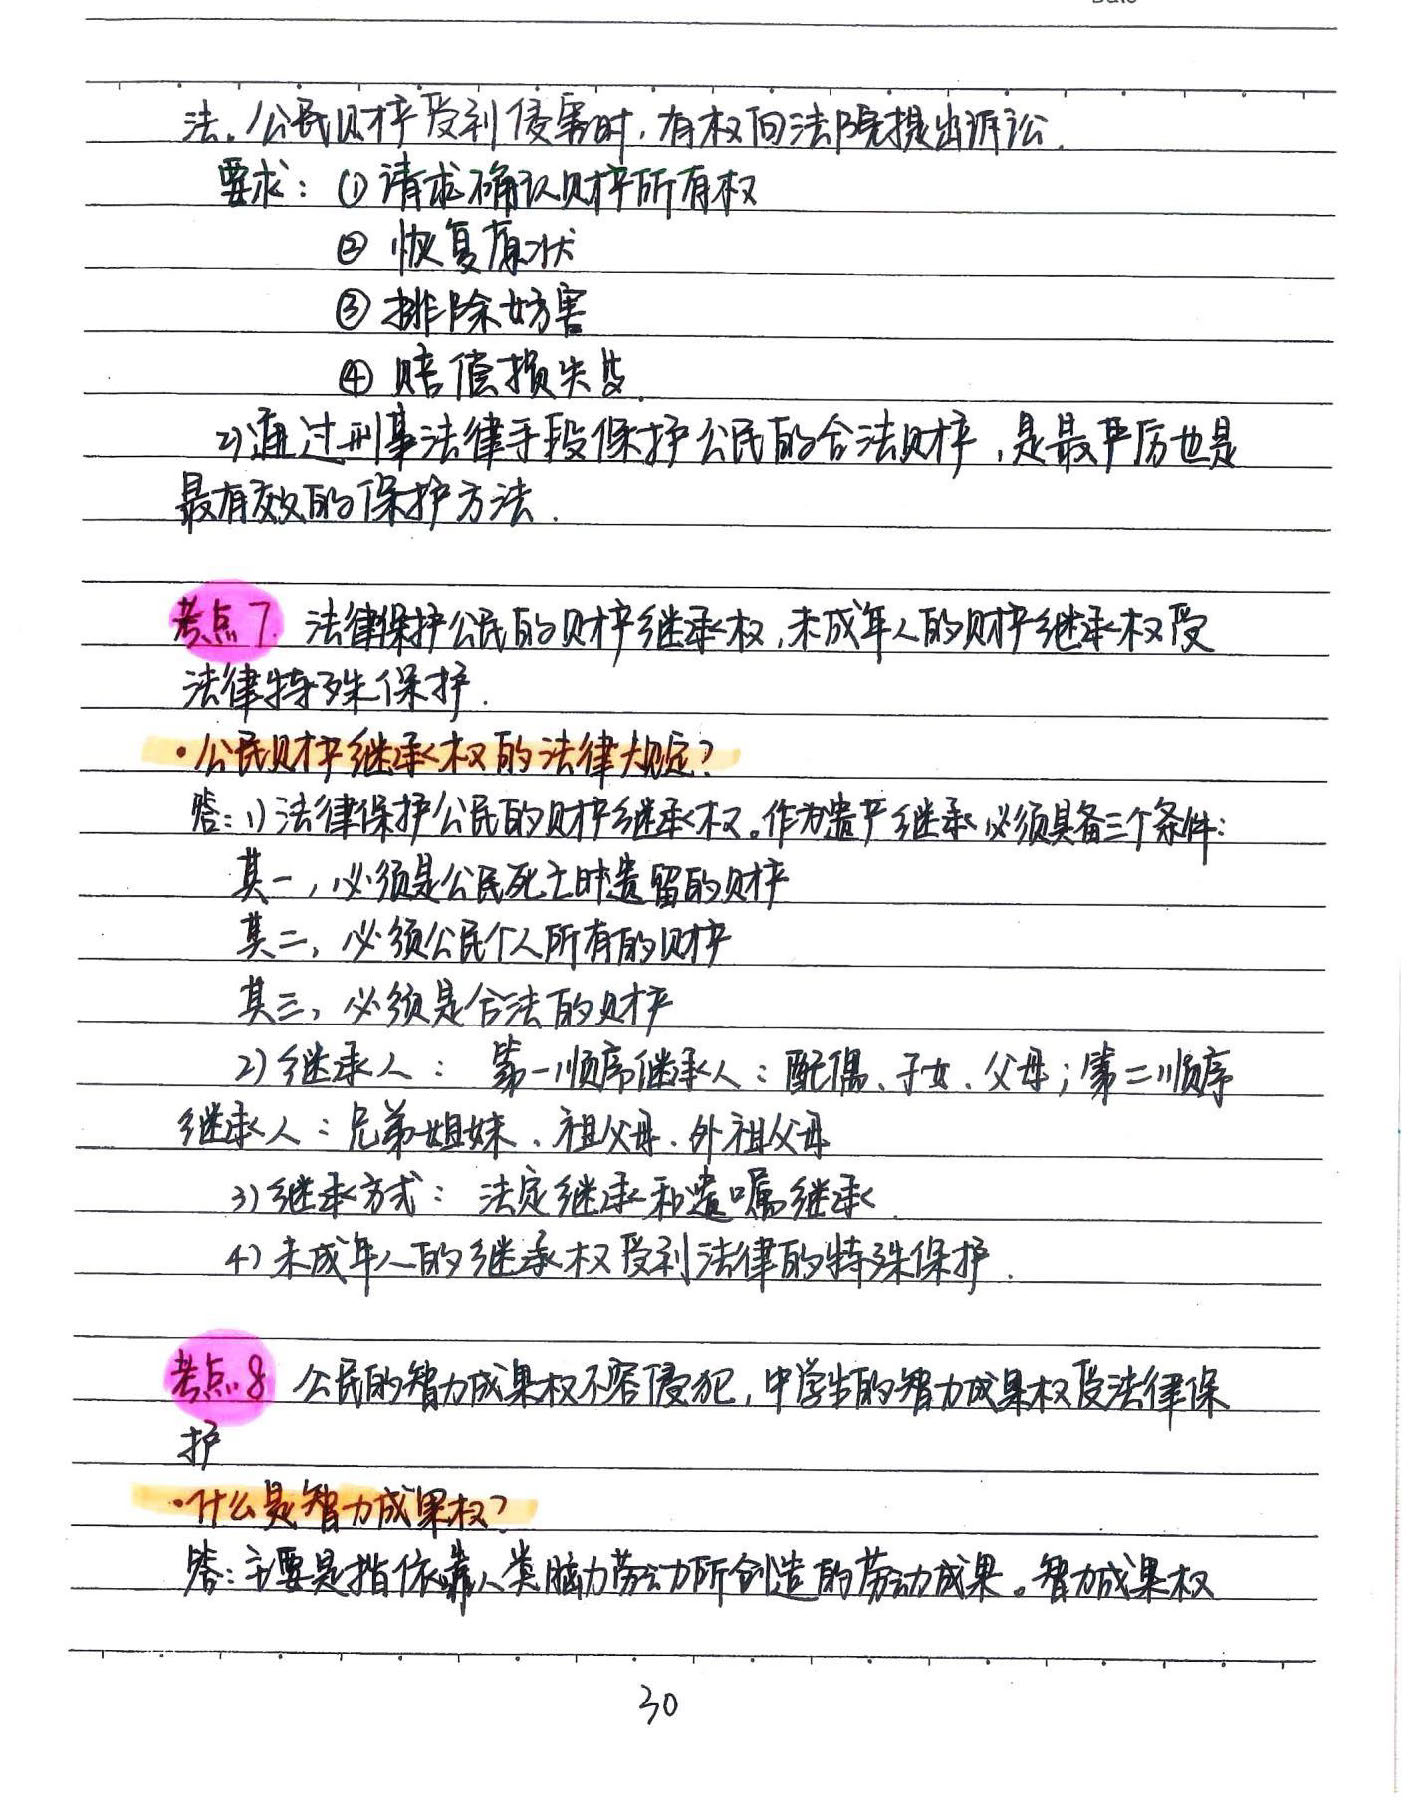 法。公民财产受到侵害时,有权向法院提出诉讼.
要求: ①请求确认财产所有权
② 恢复原状
③ 排除妨害
④ 赔偿损失等.
2)通过刑事法律手段保护公民的合法财产,是最严厉也是
最有效的保护方法.
考点7. 法律保护公民的财产继承权,未成年人的财产继承权受
法律特殊保护.
·公民财产继承权的法律规定?
答:1)法律保护公民的财产继承权。作为遗产继承必须具备三个条件:
其一,必须是公民死亡时遗留的财产
其二,必须公民个人所有的财产
其三,必须是合法的财产
2)继承人: 第一顺序继承人:配偶、子女、父母;第二顺序
继承人:兄弟姐妹、祖父母、外祖父母
3)继承方式: 法定继承和遗嘱继承.
4)未成年人的继承权受到法律的特殊保护.
考点8 公民的智力成果权不容侵犯,中学生的智力成果权受法律保
护
·什么是智力成果权?
答:主要是指依靠人类脑力劳动所创造的劳动成果。智力成果权
30